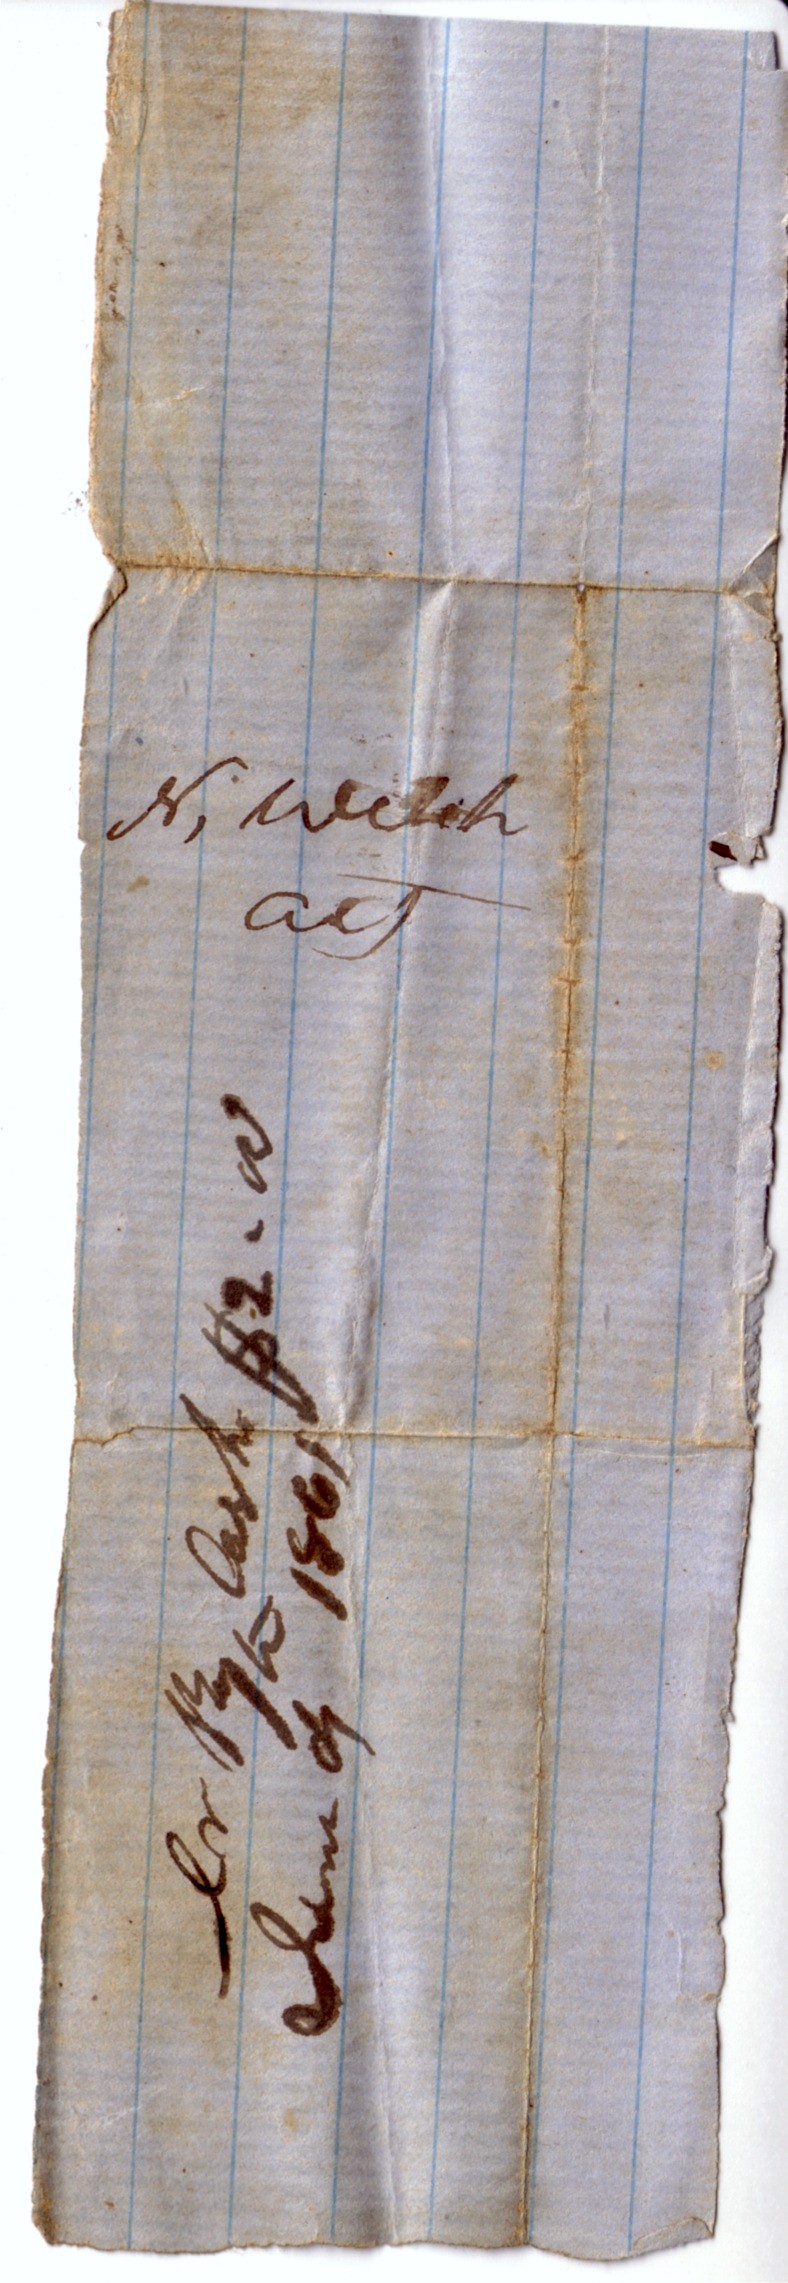 N, Welch
act
Cr By Cash $2.00
June 1861